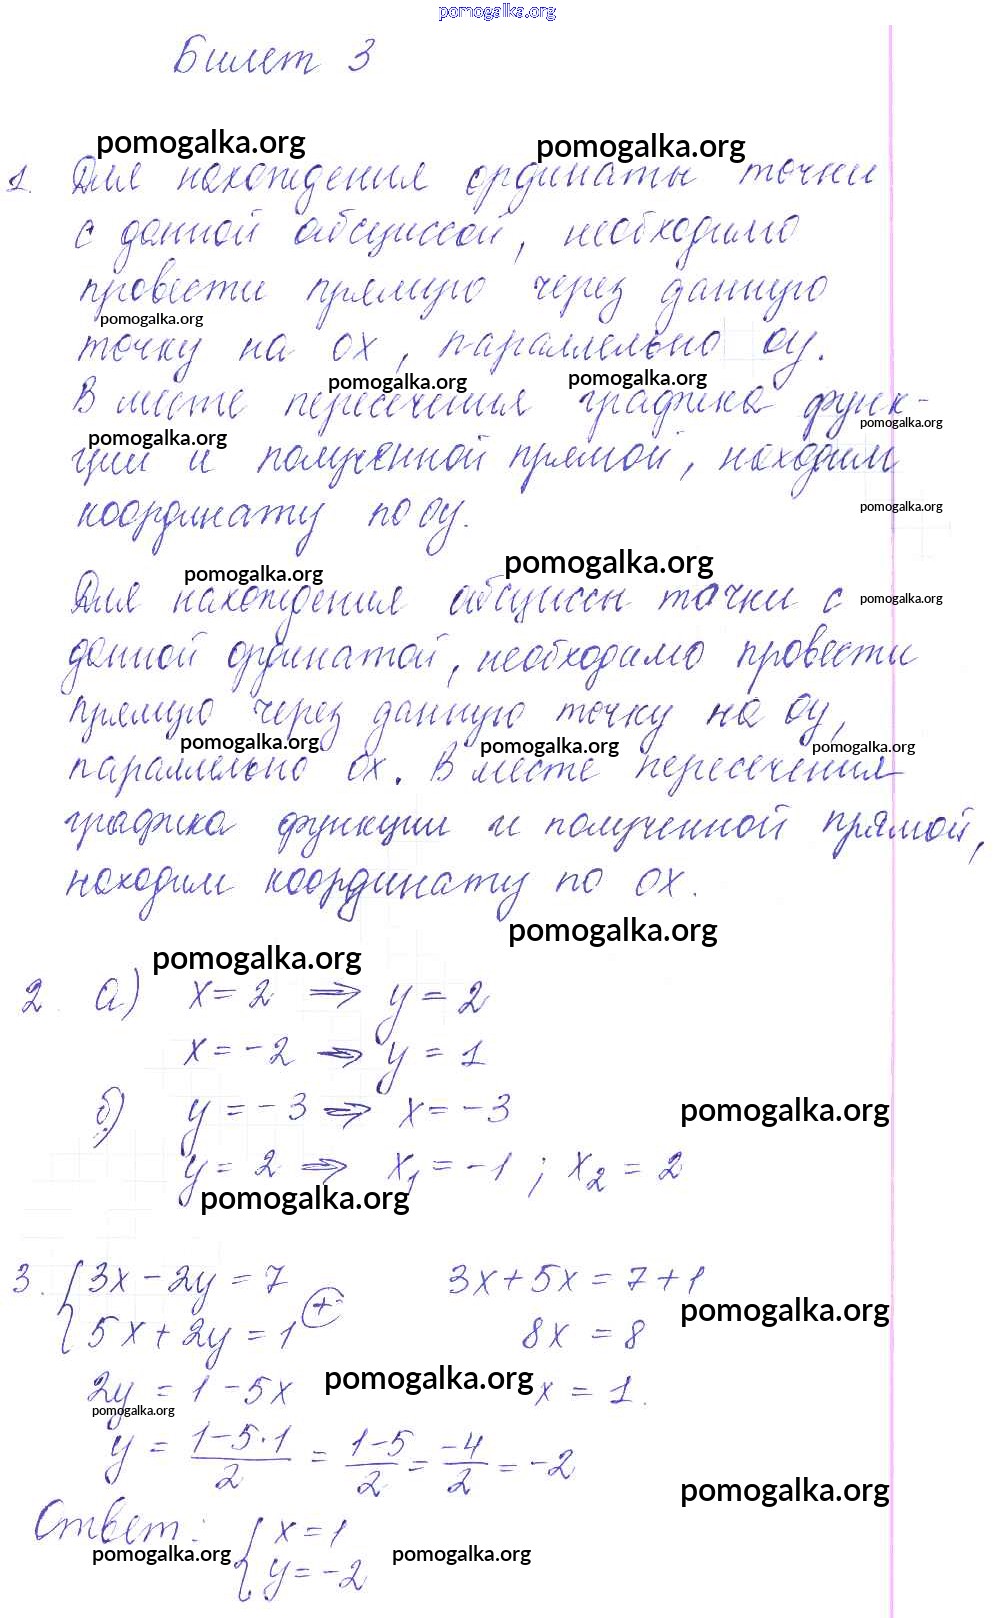 pomogalka.org
Билет 3
pomogalka.org pomogalka.org
1. Для нахождения ординаты точки
с данной абсциссой, необходимо
провести прямую через данную
pomogalka.org
точку на ох, параллельно оу.
pomogalka.org pomogalka.org
В месте пересечения графика функ-
pomogalka.org
pomogalka.org
ции и полученной прямой, находим
pomogalka.org
координату по оу.
pomogalka.org pomogalka.org
Для нахождения абсциссы точки с
pomogalka.org
данной ординатой, необходимо провести
прямую через данную точку на оу,
pomogalka.org pomogalka.org pomogalka.org
параллельно ох. В месте пересечения
графика функции и полученной прямой,
находим координату по ох.
pomogalka.org
pomogalka.org
2. а) x = 2 ⇒ y = 2
x = -2 ⇒ y = 1
б) y = -3 ⇒ x = -3
pomogalka.org
y = 2 ⇒ x₁ = -1 ; x₂ = 2
pomogalka.org
3. { 3x - 2y = 7 3x + 5x = 7 + 1
(+)
pomogalka.org
5x + 2y = 1 8x = 8
2y = 1 - 5x x = 1.
pomogalka.org
pomogalka.org
y = (1-5·1)/2 = (1-5)/2 = -4/2 = -2
pomogalka.org
Ответ: { x = 1
pomogalka.org pomogalka.org
y = -2